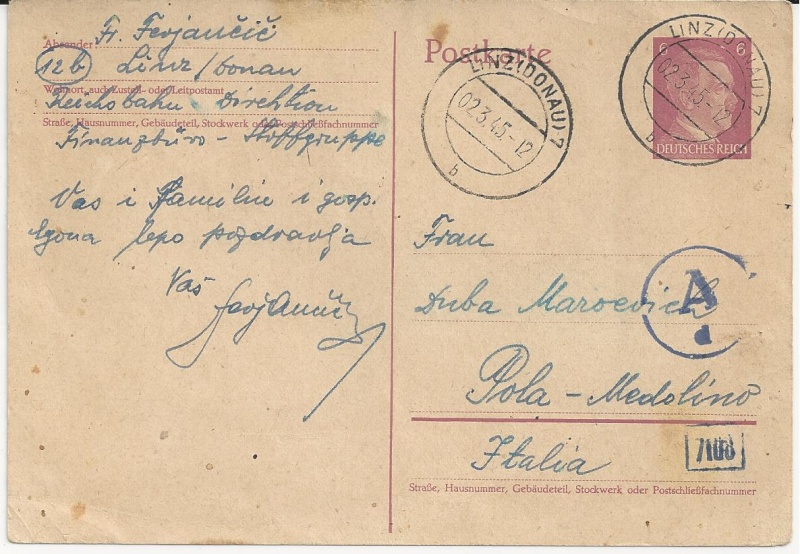 Absender:
Fr. Ferjančič
12b Linz/Donau
Wohnort, auch Zustell- oder Leitpostamt
Reichsbahn Direktion
Straße, Hausnummer, Gebäudeteil, Stockwerk oder Postschließfachnummer
Finanzbüro - Stoffgruppe
Vas i Familiu i gosp.
Egona lepo pozdravlja
Vaš
Ferjančič
Postkarte
LINZ(DONAU)7
02.3.45.-12
b
LINZ(DONAU)7
02.3.45.-12
b
6 6
DEUTSCHES REICH
Frau
Duba Maroevich
A
d
Pola - Medolino
Italia
7108
Straße, Hausnummer, Gebäudeteil, Stockwerk oder Postschließfachnummer